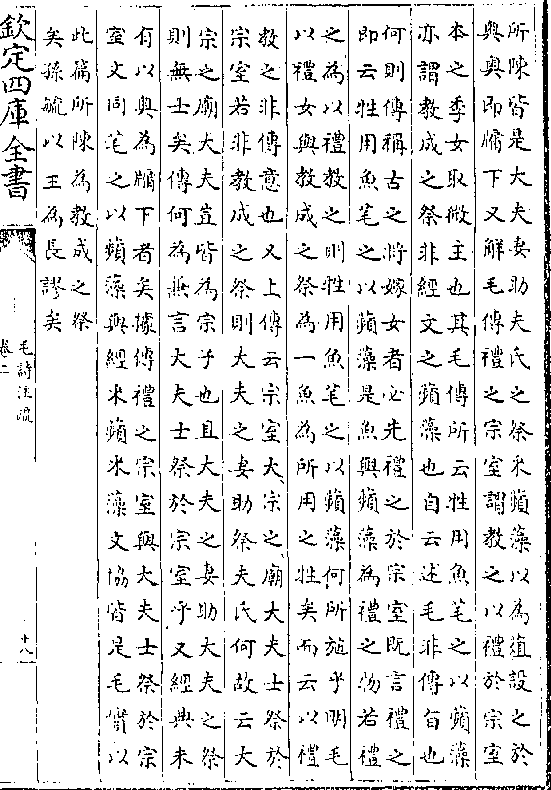 所陳皆是大夫妻助夫氏之祭采蘋藻以為葅設之於
奧奧即牖下又解毛傳禮之宗室謂教之以禮於宗室
本之季女取微主也其毛傳所云牲用魚芼之以蘋藻
亦謂教成之祭非經文之蘋藻也自云述毛非傳旨也
何則傳稱古之將嫁女者必先禮之於宗室既言禮之
即云牲用魚芼之以蘋藻是魚與蘋藻為禮之物若禮
之為以禮教之則牲用魚芼之以蘋藻何所施乎明毛
以禮女與教成之祭為一魚為所用之牲矣而云以禮
教之非傳意也又上傳云宗室大宗之廟大夫士祭於
宗室若非教成之祭則大夫之妻助祭夫氏何故云大
宗之廟大夫豈皆為宗子也且大夫之妻助大夫之祭
則無士矣傳何為無言大夫士祭於宗室乎又經典未
有以奧為牖下者矣據傳禮之宗室與大夫士祭於宗
室文同芼之以蘋藻與經采蘋采藻文協皆是毛實以
此篇所陳為教成之祭
矣孫毓以王為長謬矣
欽定四庫全書
毛詩注疏
卷二
十八